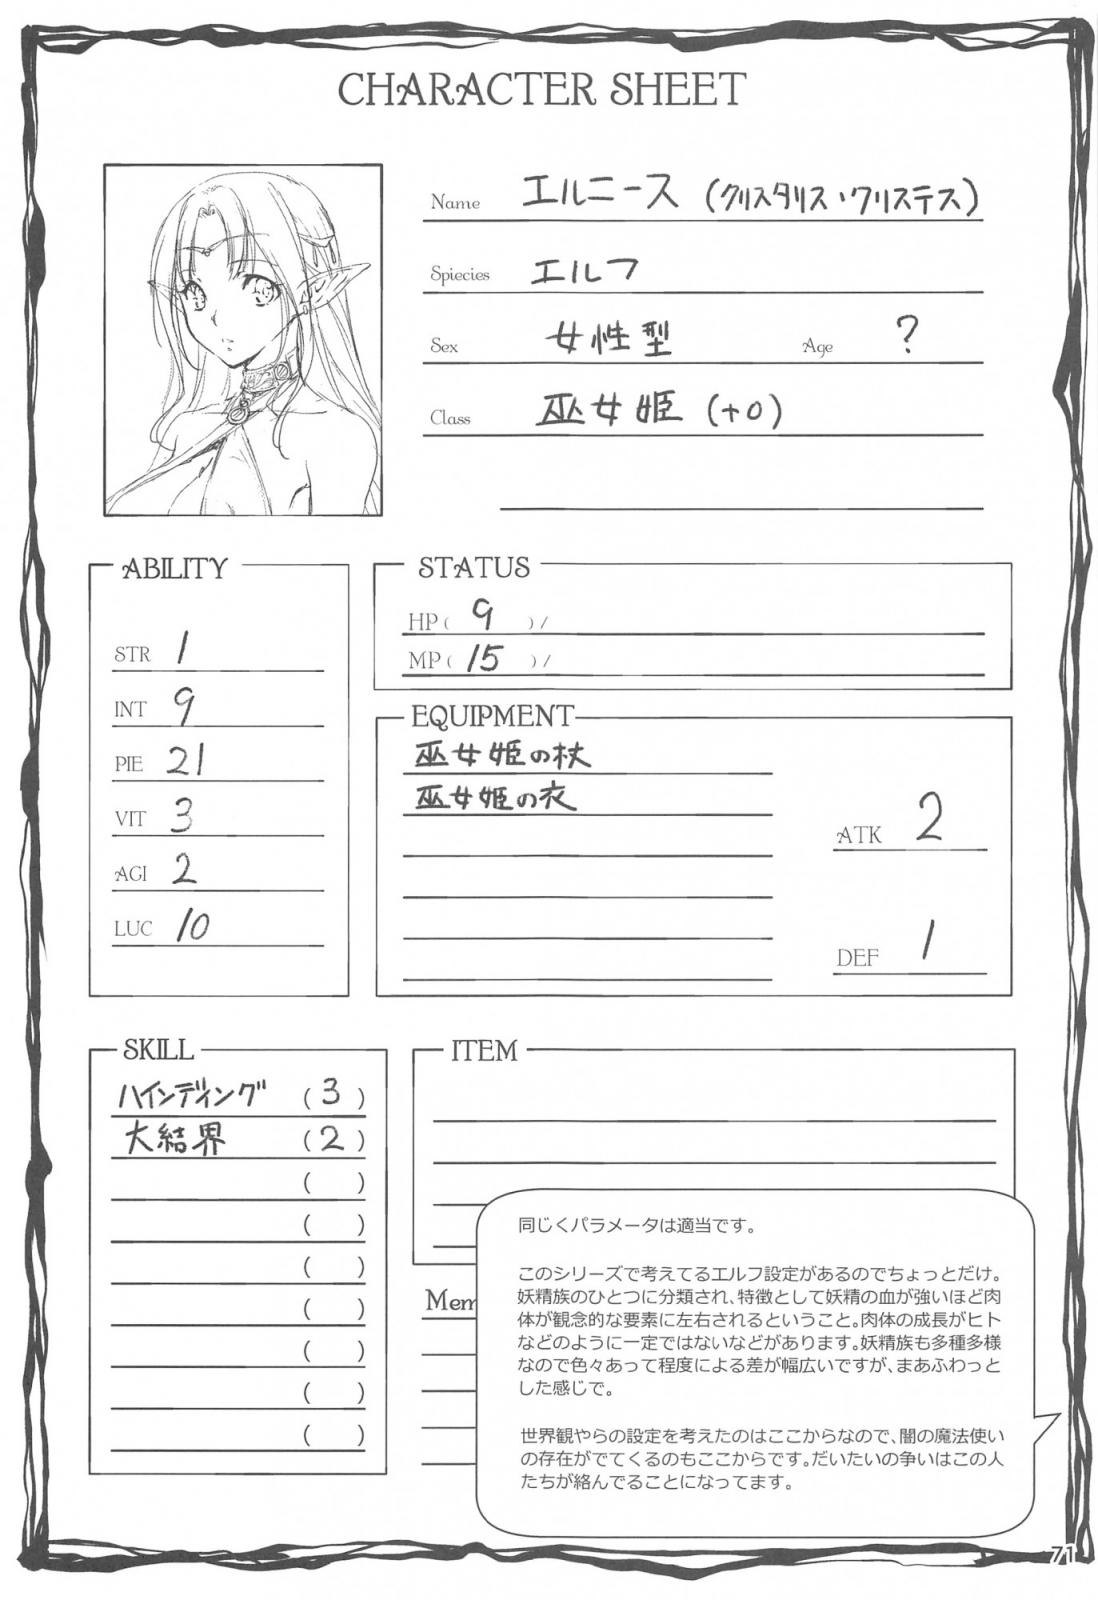 CHARACTER SHEET
Name エルニース (クリスタリス・クリステス)
Spiecies エルフ
Sex 女性型 Age ?
Class 巫女姫 (+0)
ABILITY
STR 1
INT 9
PIE 21
VIT 3
AGI 2
LUC 10
STATUS
HP( 9 )/
MP( 15 )/
EQUIPMENT
巫女姫の杖
巫女姫の衣
ATK 2
DEF 1
SKILL
ハインディング (3)
大結界 (2)
( )
( )
( )
( )
( )
( )
( )
ITEM
Mem
同じくパラメータは適当です。
このシリーズで考えてるエルフ設定があるのでちょっとだけ。
妖精族のひとつに分類され、特徴として妖精の血が強いほど肉
体が観念的な要素に左右されるということ。肉体の成長がヒト
などのように一定ではないなどがあります。妖精族も多種多様
なので色々あって程度による差が幅広いですが、まあふわっと
した感じで。
世界観やらの設定を考えたのはここからなので、闇の魔法使い
の存在がでてくるのもここからです。だいたいの争いはこの人
たちが絡んでることになってます。
71